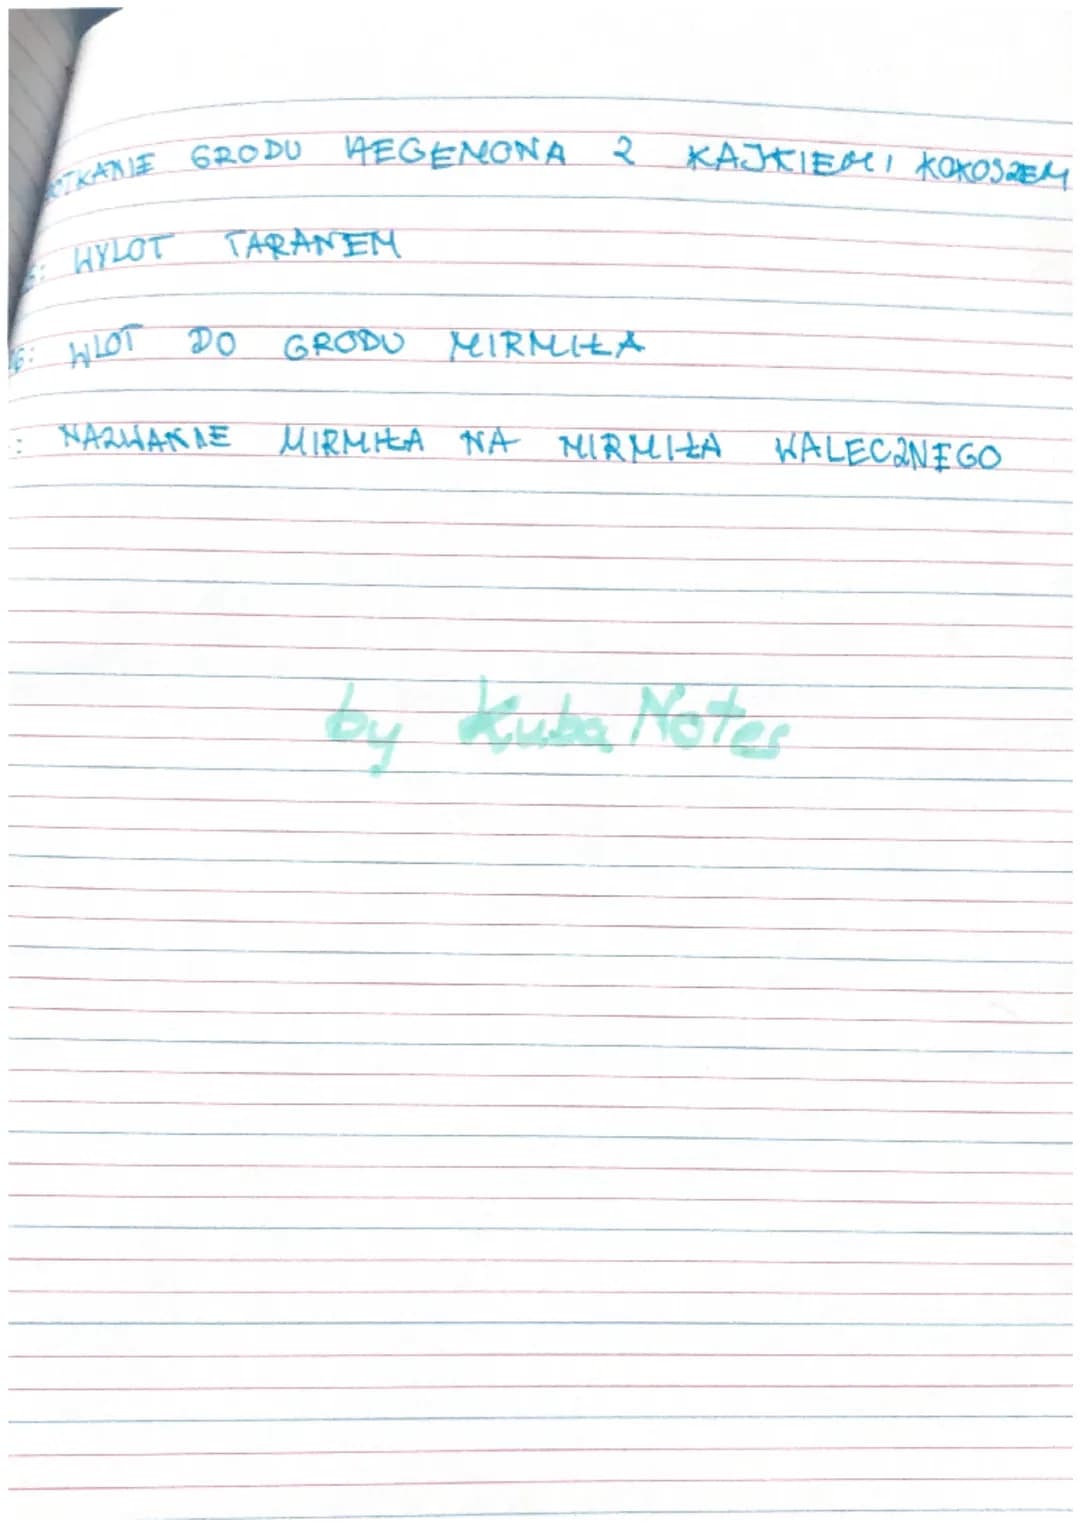 OTKANIE GRODU HEGEMONA Z KAJKIEM I KOKOSZEM
: WYLOT TARANEM
6: WLOT DO GRODU MIRMIŁA
: NAZWANIE MIRMIŁA NA MIRMIŁA WALECZNEGO
by Kuba Notes